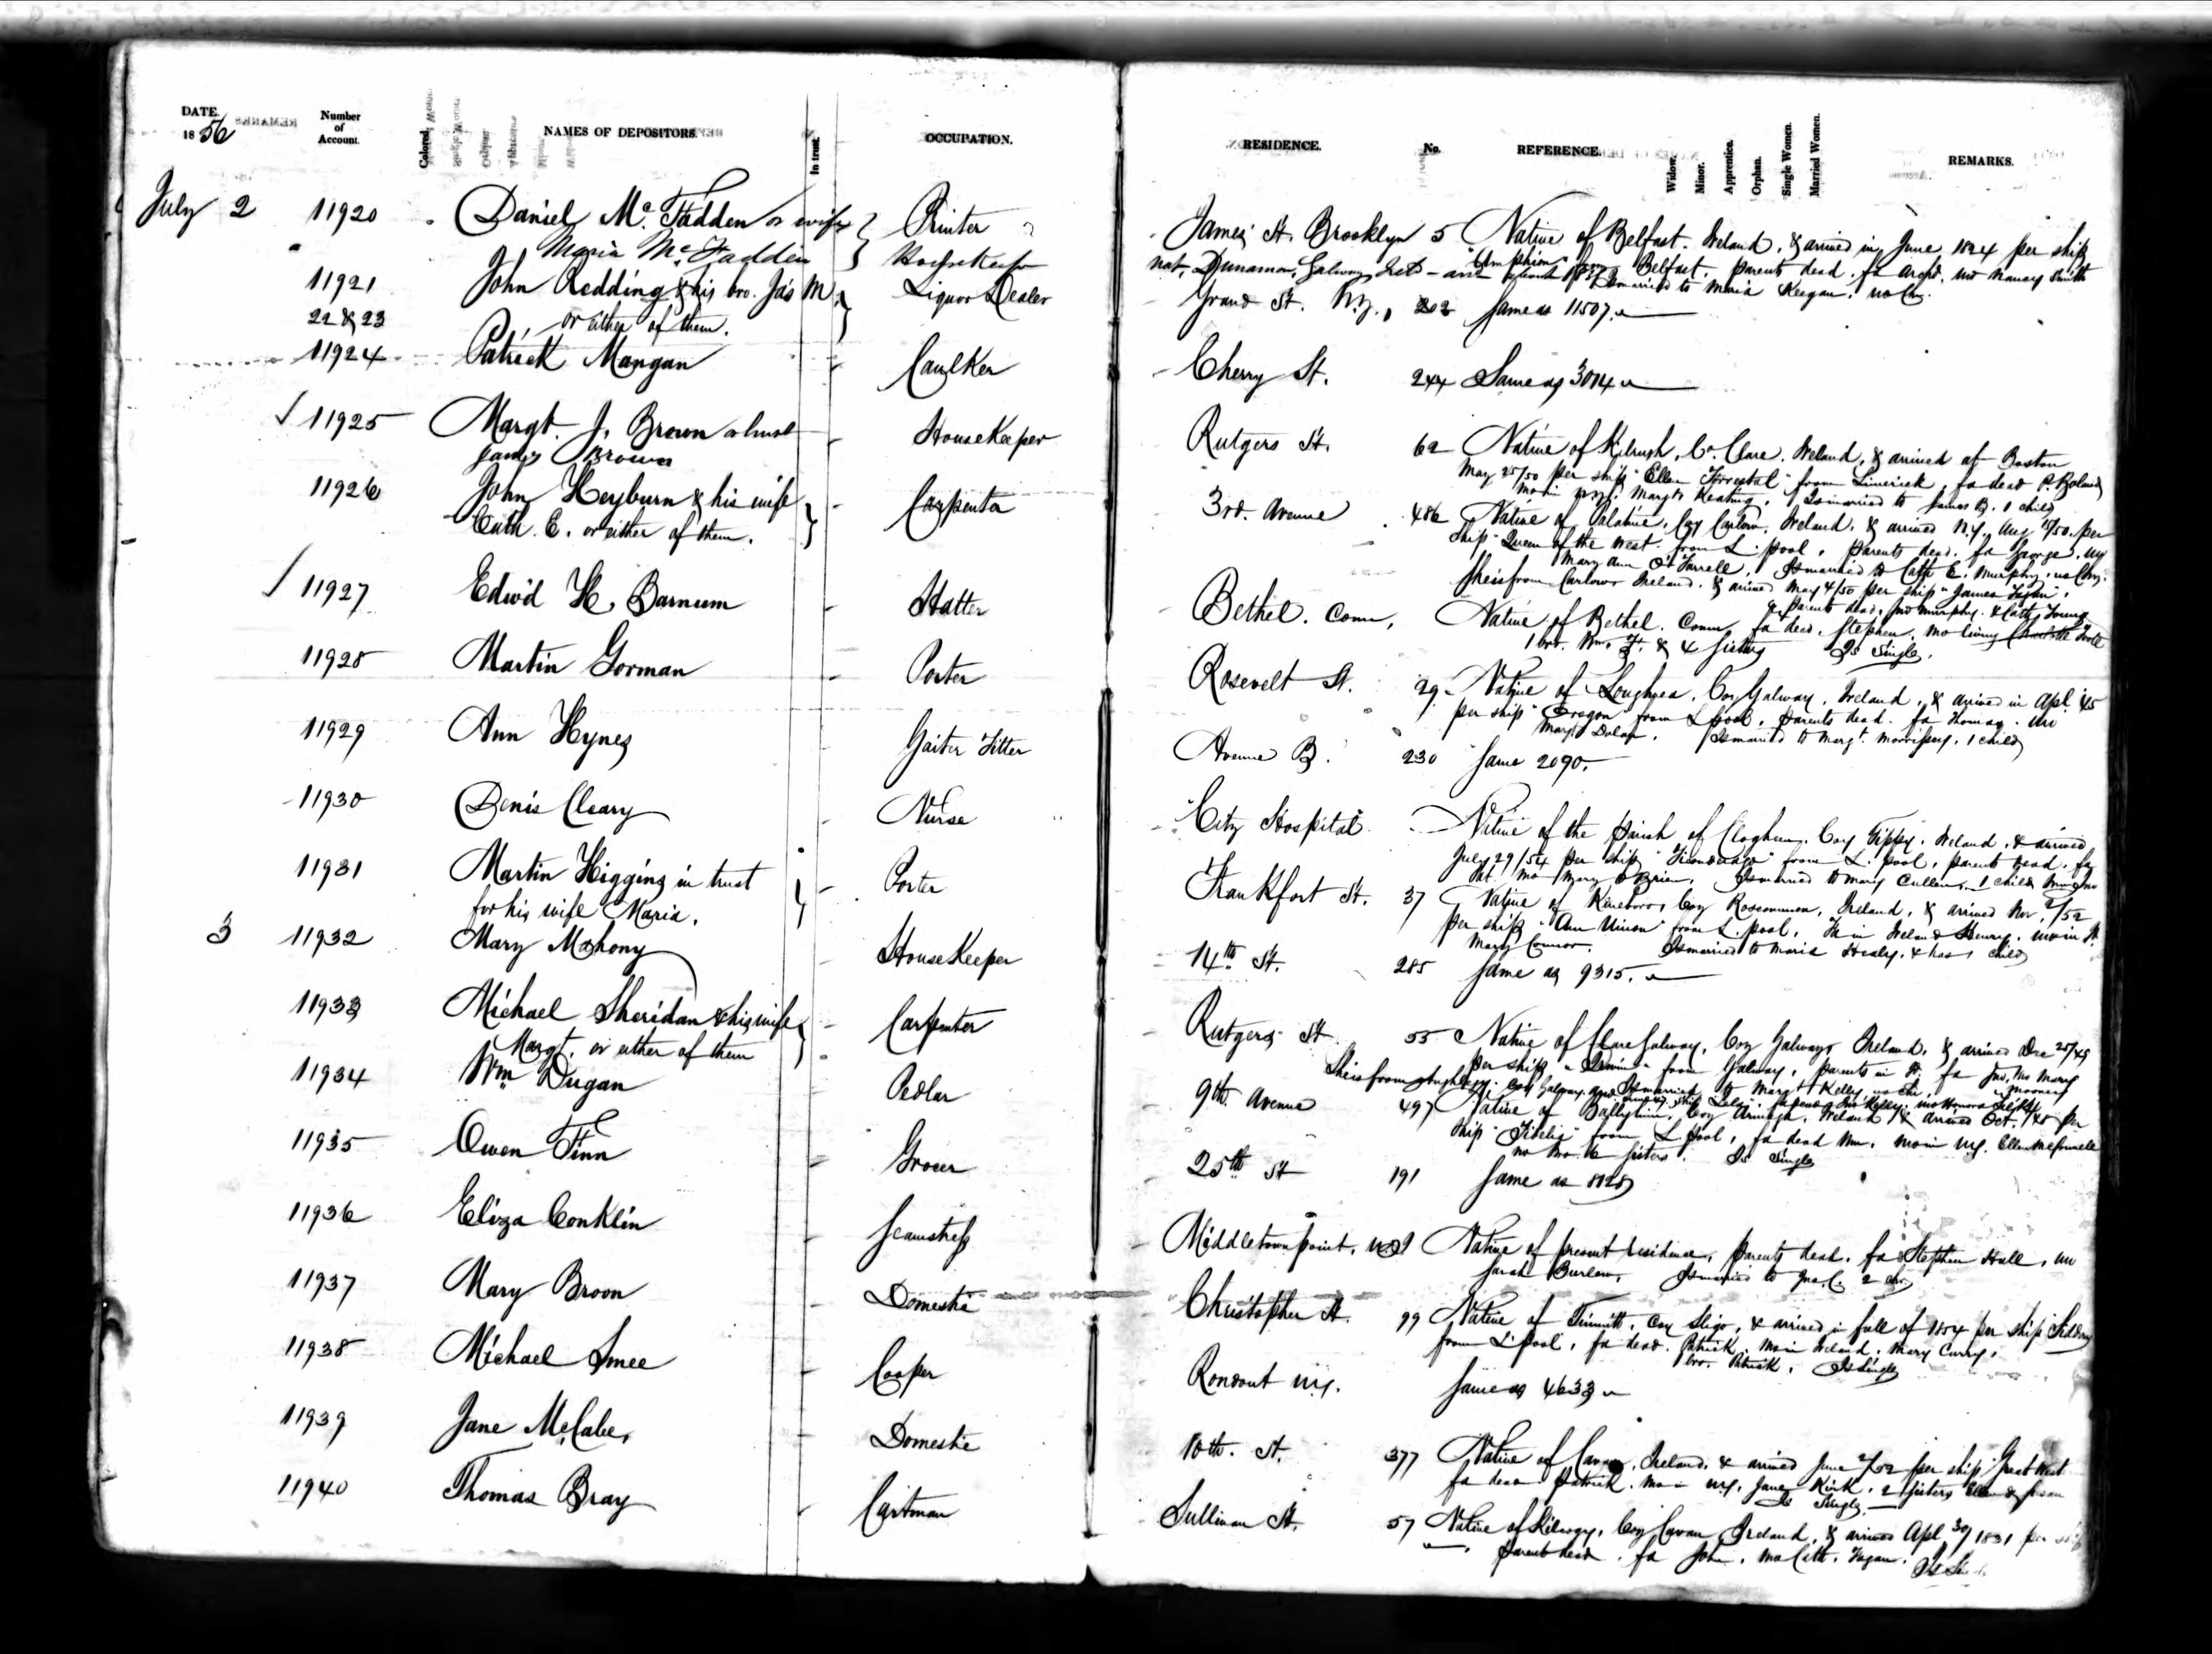 DATE. 1856 Number of Account. Colored. NAMES OF DEPOSITORS. In trust. OCCUPATION. RESIDENCE. No. REFERENCE. Widow. Minor. Apprentice. Orphan. Single Women. Married Women. REMARKS.
July 2 11920 Daniel Mc.Fadden or wife Printer James St. Brooklyn 5 Native of Belfast. Ireland, & arrived in June 1824 per ship
Maria Mc.Fadden Housekeeper nat. Galway Belfast. parents dead. fa mo Nancy Smith
Is married to Maria Keegan. no chn.
11921 John Redding & his bro. Jas M. Liquor Dealer Grand St. N.Y., 202 Same as 11507.
22 & 23 or either of them.
11924 Patrick Mangan Caulker Cherry St. 244 Same as 3014
11925 Margt. J. Brown or husb HouseKeeper Rutgers St. 62 Native of Kilrush, Co. Clare. Ireland, & arrived at Boston
James Brown May 25/50 per ship "Ellen Forrestal" from Limerick, fa dead P. Boland
mo in N.Y. Margt. Keating, Is married to James B. 1 child
11926 John Heyburn & his wife Carpenter 3rd. Avenue 486 Native of Palatine, Coy Carlow, Ireland, & arrived N.Y. Aug 15/50. per
Cath. E. or either of them. Ship "Queen of the West" from L.pool, parents dead. fa George. mo
Mary Ann O'Farrell, Is married to Cath E. Murphy, no Chn.
She is from Carlow Ireland. & arrived May 4/50 per ship "James Fagan",
parents dead, Jno Murphy. & Cath Young
11927 Edwd H. Barnum Hatter Bethel. Conn, Native of Bethel. Conn, fa dead. Stephen, mo living
1 bro. Wm. H. & 4 sisters Is Single.
11928 Martin Gorman Porter Rosevelt St. 29 Native of Loughrea, Coy Galway, Ireland, & arrived in Apl. 45
per ship "Oregon" from L pool, parents dead. fa Thomas. mo
Mary Dolan. Is married to Margt. Morrissey. 1 child
11929 Ann Hynes Gaiter Fitter Avenue B. 230 Same 2090.
11930 Denis Cleary Nurse City Hospital Native of the parish of Clogheen. Coy Tippy. Ireland, & arrived
July 29/54 per ship "Ticonderoga" from L.pool, parents dead. fa
Pat. mo Mary O'Brien, Is married to Mary Cullen, 1 child
11931 Martin Higgins in trust Porter Frankfort St. 37 Native of Coy Roscommon, Ireland, & arrived Nov. 2/52
for his wife Maria. per ship "Ann from L.pool, Fa in Ireland Henry. mo in
Mary Connor. Is married to Maria Healy. & has 1 child
3 11932 Mary Mahony HouseKeeper 14th St. 285 Same as 9315.
11933 Michael Sheridan & his wife Carpenter Rutgers St 55 Native of ClareGalway, Coy Galway Ireland, & arrived Dec 25/45
Margt. or either of them per ship from Galway, parents in fa Jno, Mo Mary Mooney
She is from Coy Galway Is married to Margt Kelly no chn.
11934 Wm Dugan Pedlar 9th Avenue 497 Native of Coy Armagh, Ireland, & arrived Oct. /48 per
Ship "Fidelia" from L.pool, fa dead Wm, mo in N.Y. Ellen
no bro. 6 sisters. Is Single
11935 Owen Finn Grocer 25th St 191 Same as 8128
11936 Eliza Conklin Seamstress Middletown point, N.J. Native of present residence, parents dead. fa Stephen Hall, mo
Sarah Burlew, Is married to Jno C. 2 chn
11937 Mary Broon Domestic Christopher St. 99 Native of Coy Sligo, & arrived in fall of 1854 per ship
from L'pool, fa dead. Patrick. Mo in Ireland, Mary Curry,
1 bro. Patrick, Is Single
11938 Michael Smee Cooper Rondout N.Y. Same as 4633
11939 Jane McCabe, Domestic 10th. St. 377 Native of Cavan, Ireland, & arrived June 2/52 per ship "Great West"
fa dead Patrick. Mo in N.Y. Jane Kirk, 2 sisters Ellen & Susan
Is Single
11940 Thomas Bray Cartman Sullivan St. 57 Native of Coy Cavan, Ireland, & arrived Apl 30/1831 per ship
parents dead. fa John. mo Cath. Fagan.